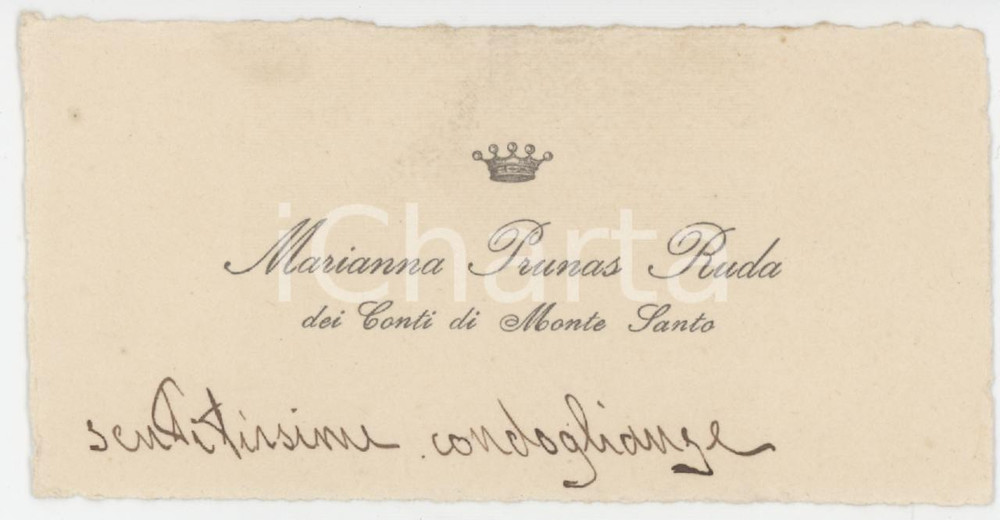 Marianna Prunas Ruda
dei Conti di Monte Santo
sentitissime condoglianze
iCharta